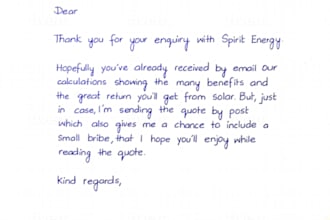 Dear
Thank you for your enquiry with Spirit Energy
Hopefully you've already received by email our
calculations showing the many benefits and
the great return you'll get from solar. But, just
in case, I'm sending the quote by post
which also gives me a chance to include a
small bribe, that I hope you'll enjoy while
reading the quote.
kind regards,